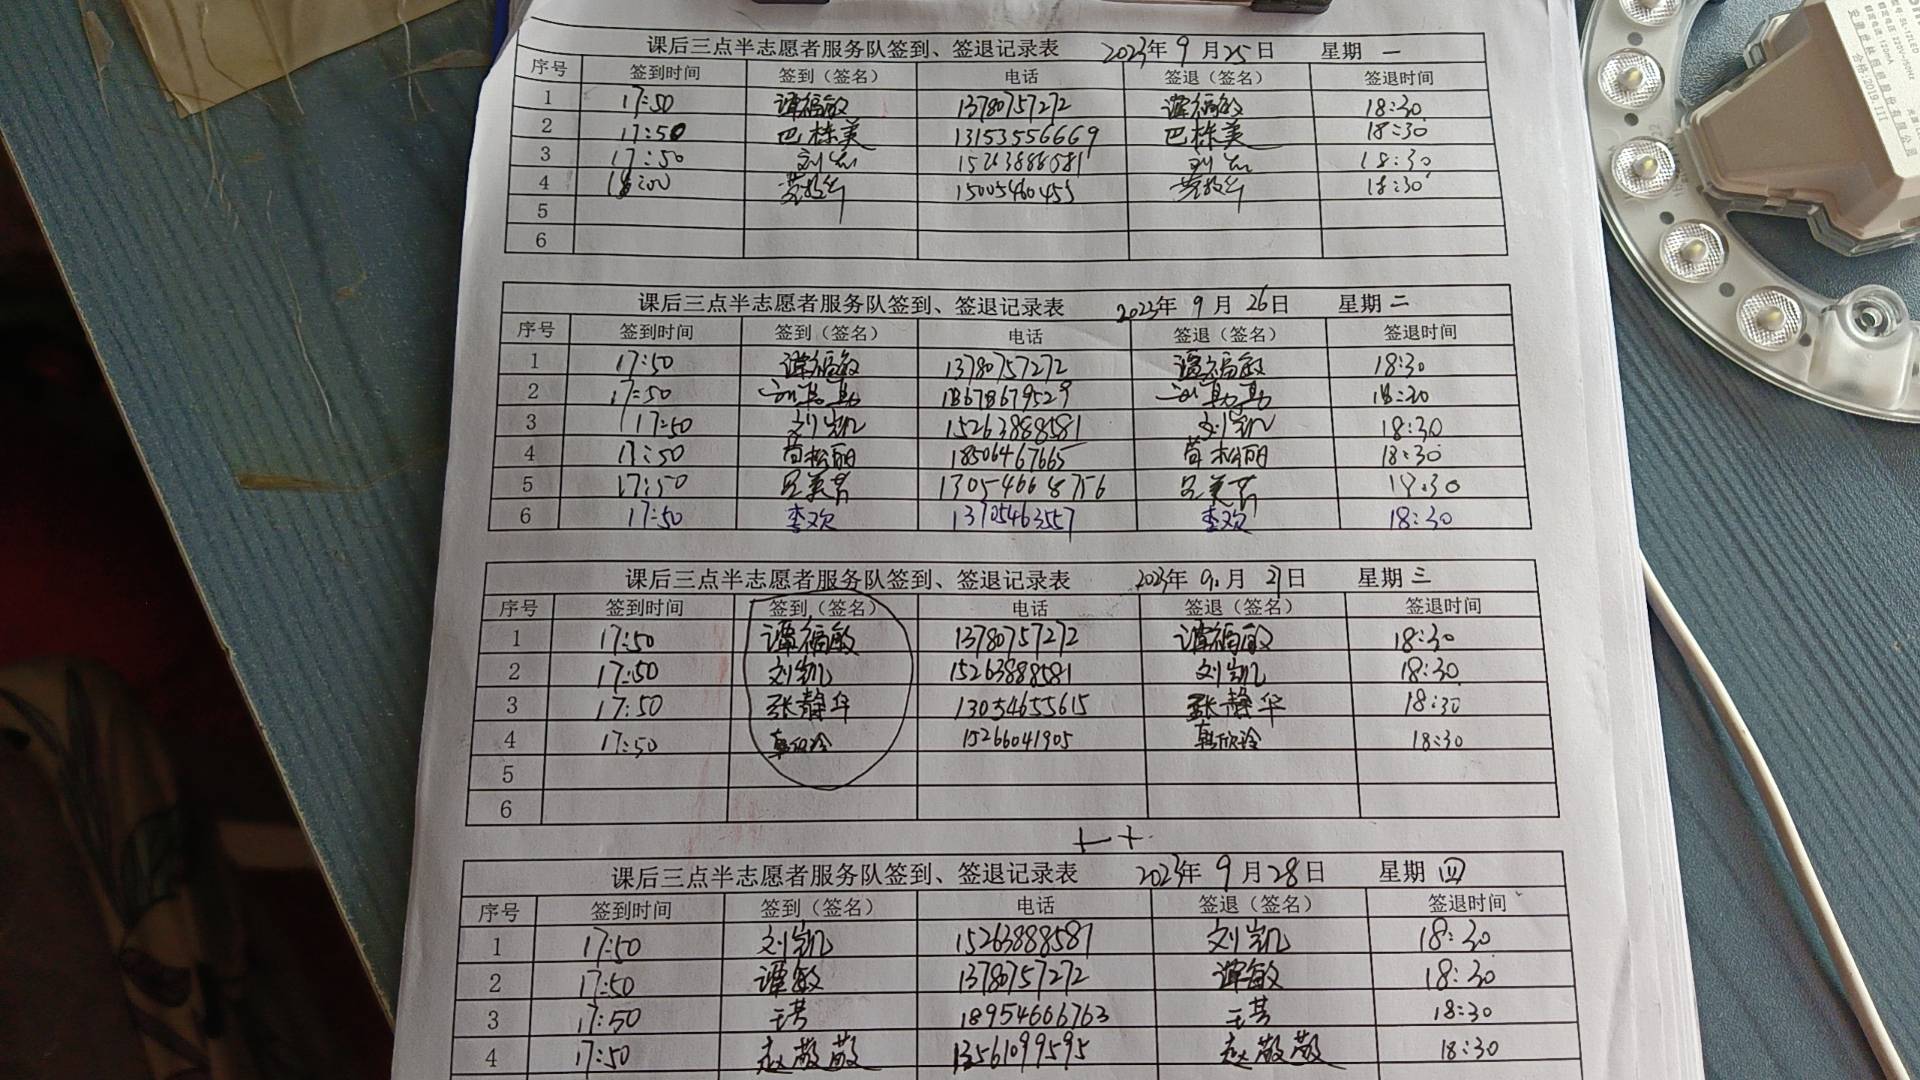 课后三点半志愿者服务队签到、签退记录表 2023年 9月25日 星期 一
序号 签到时间 签到（签名） 电话 签退（签名） 签退时间
1 17:50 谭福敏 13780757272 谭福敏 18:30
2 17:50 巴栋美 13153556669 巴栋美 18:30
3 17:50 刘 15263888581 刘 18:30
4 18:00 15005460455 18:30
5
6
课后三点半志愿者服务队签到、签退记录表 2023年 9月 26日 星期 二
序号 签到时间 签到（签名） 电话 签退（签名） 签退时间
1 17:50 谭福敏 13780757272 谭福敏 18:30
2 17:50 18678679529 18:30
3 17:50 刘凯 15263888581 刘凯 18:30
4 17:50 苟松丽 18506467665 苟松丽 18:30
5 17:50 13054668756 18:30
6 17:50 李欢 13705463557 李欢 18:30
课后三点半志愿者服务队签到、签退记录表 2023年 9.月 27日 星期 三
序号 签到时间 签到（签名） 电话 签退（签名） 签退时间
1 17:50 谭福敏 13780757272 谭福敏 18:30
2 17:50 刘凯 15263888581 刘凯 18:30
3 17:50 张静华 13054655615 张静华 18:30
4 17:50 韩欣玲 15266041905 韩欣玲 18:30
5
6
课后三点半志愿者服务队签到、签退记录表 2023年 9月28日 星期 四
序号 签到时间 签到（签名） 电话 签退（签名） 签退时间
1 17:50 刘凯 15263888581 刘凯 18:30
2 17:50 谭敏 13780757272 谭敏 18:30
3 17:50 王芸 18954666763 王芸 18:30
4 17:50 赵敬敬 13561099595 赵敬敬 18:30